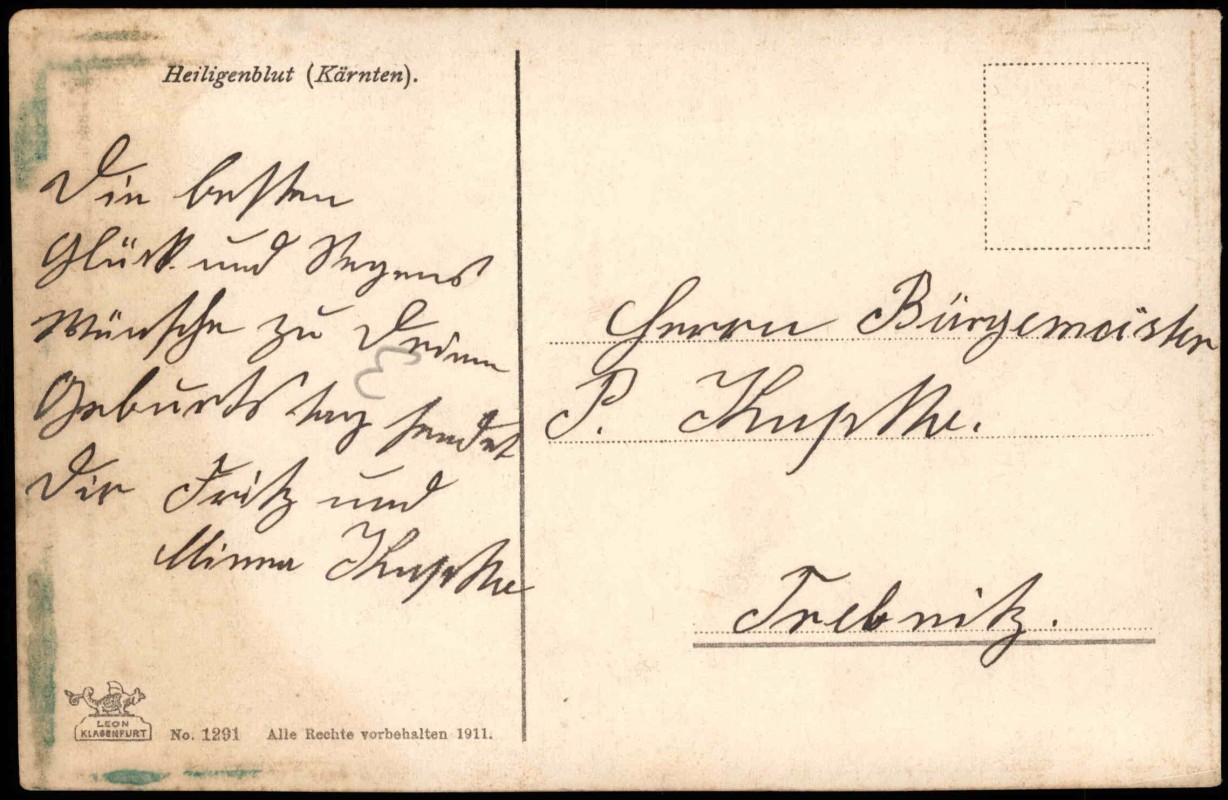 Heiligenblut (Kärnten).
Die besten
Glück und Segens
Wünsche zu Deinem
Geburtstag sendet
Dir Fritz und
Minna Kupke
Herrn Bürgemeister
P. Kupke.
Trebnitz.
LEON
KLAGENFURT
No. 1291 Alle Rechte vorbehalten 1911.